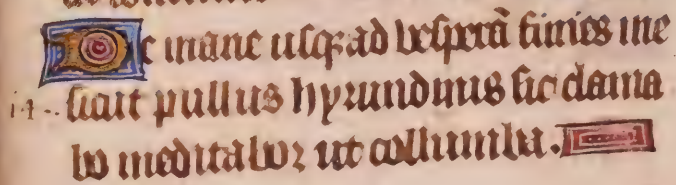 De mane usqꝫ ad vesperā finies me
14 sicut pullus hyrundinis sic clama
bo meditabor ut collumba.